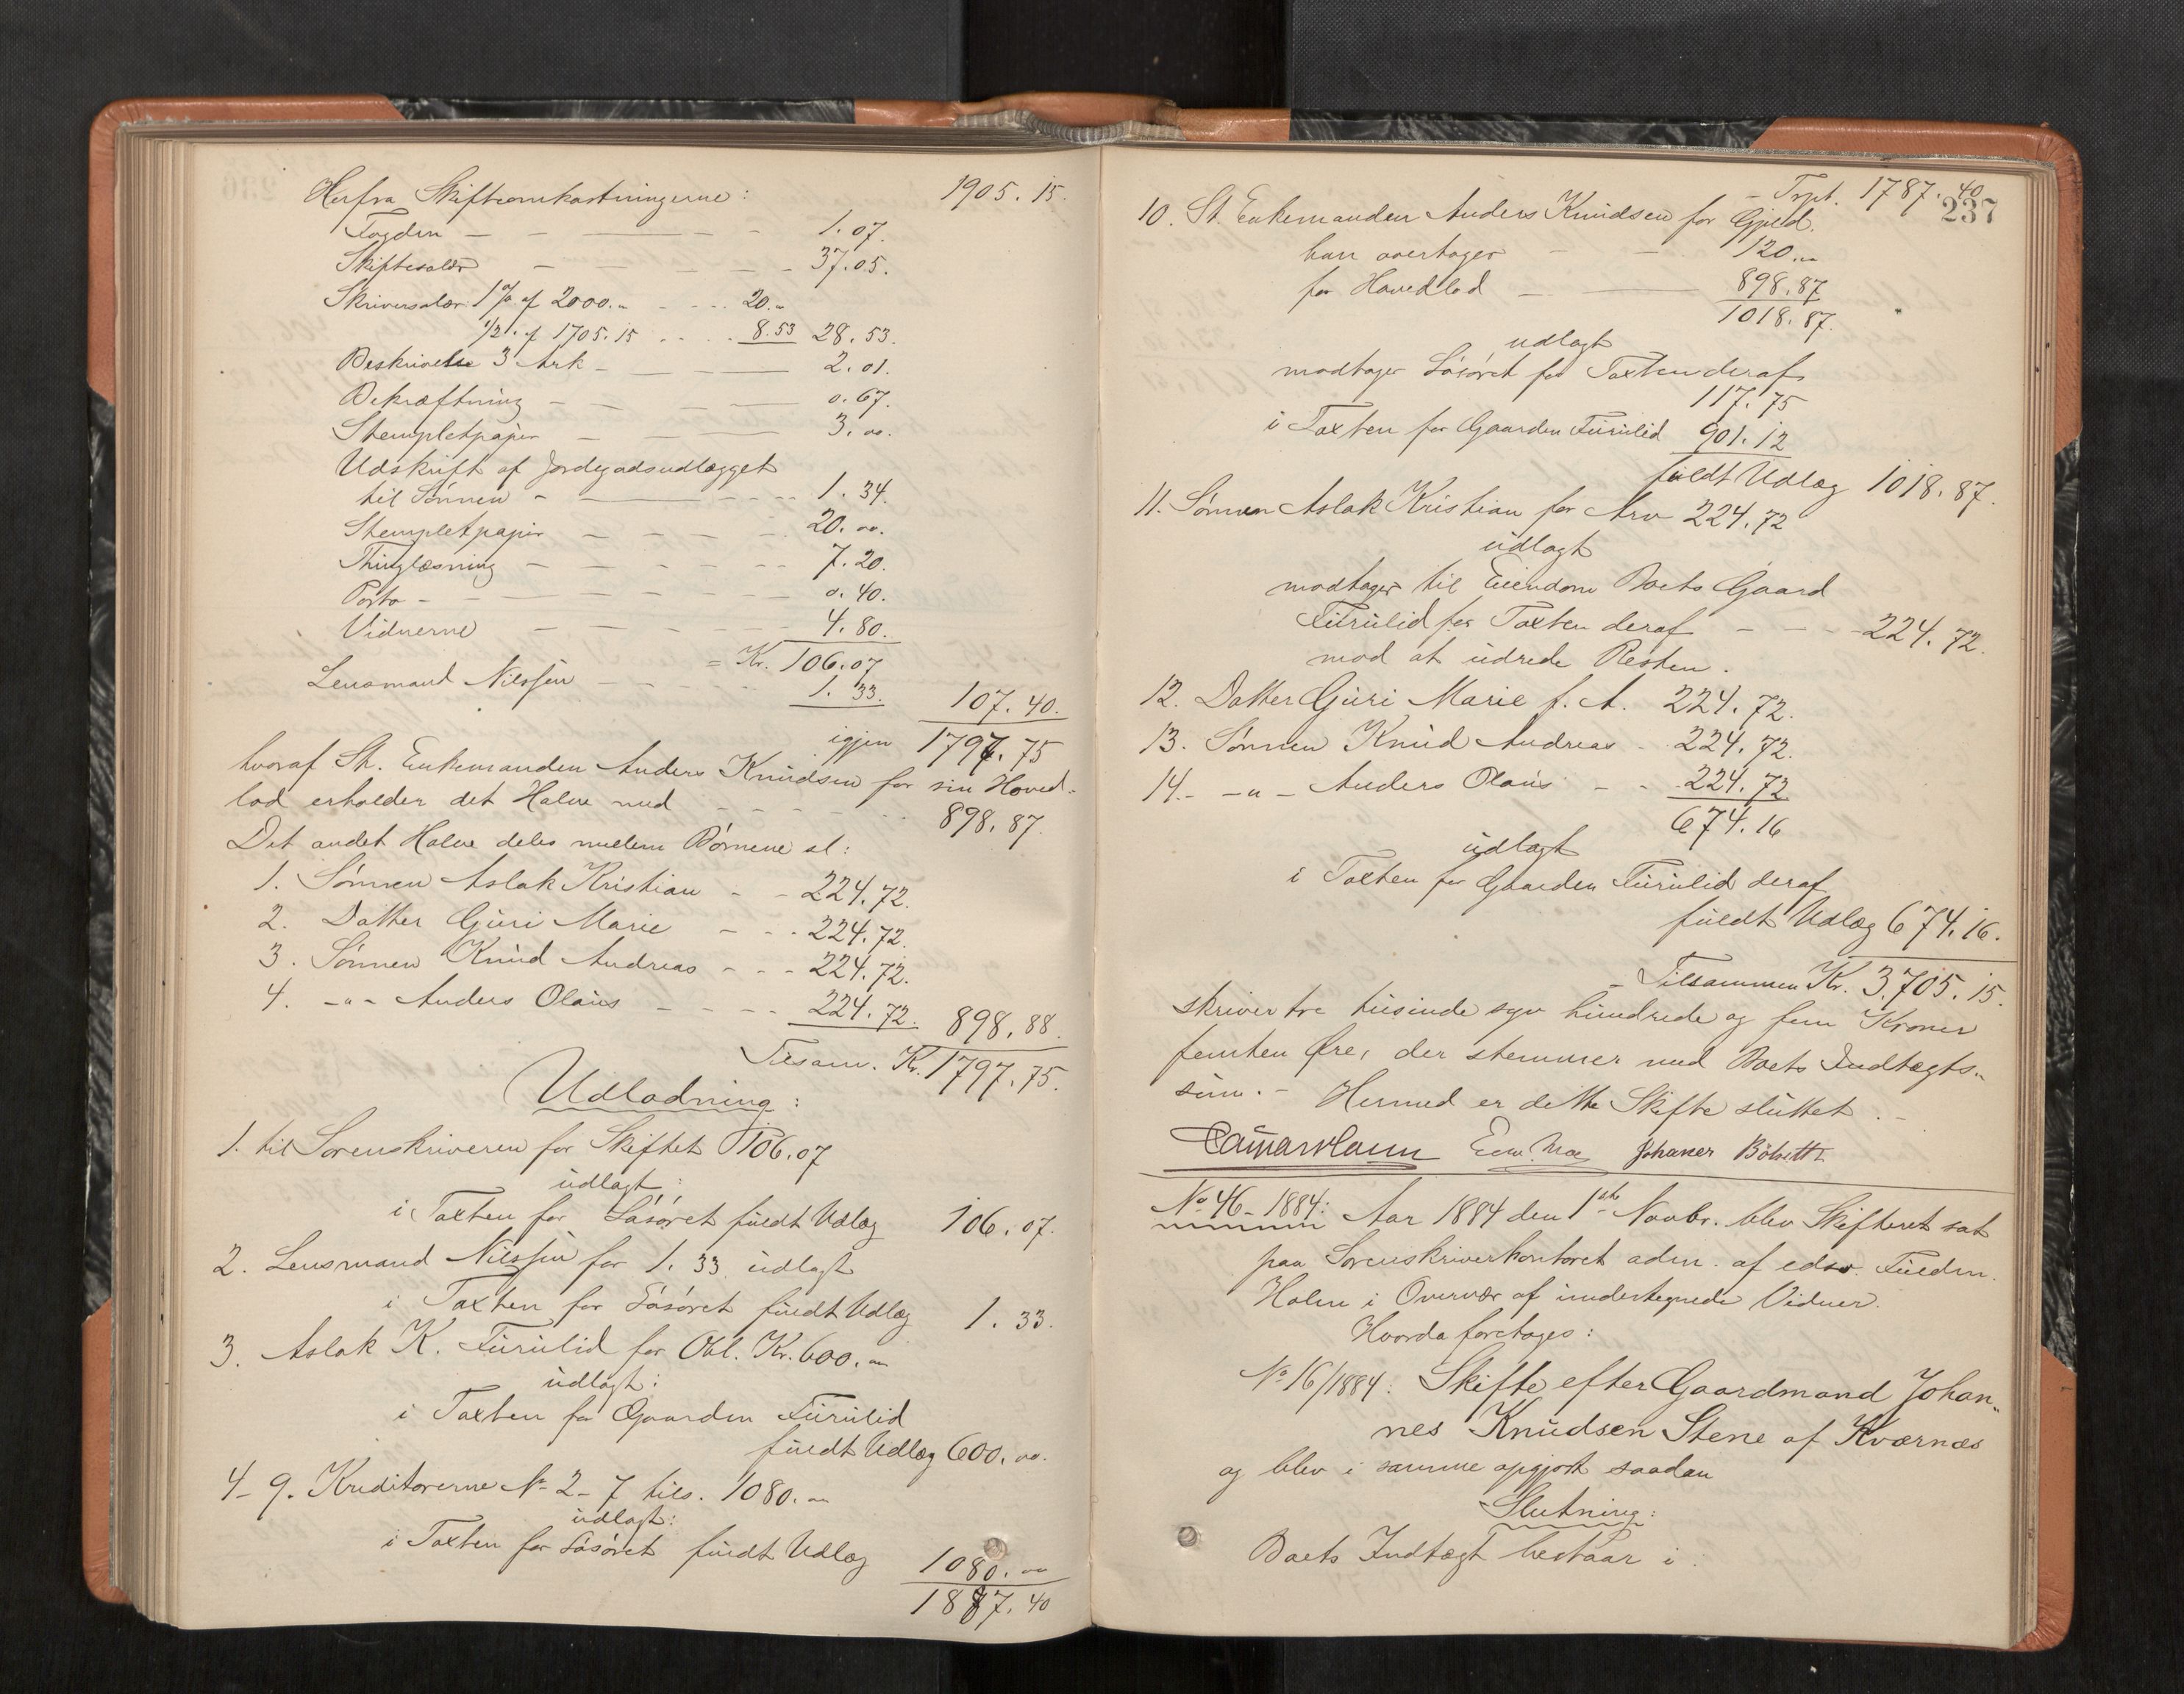 Herfra Skifteomkostningerne: 1905.15.
Fogden — — — 1.07.
Skiftesalær — — — 37.05.
Skriversalær 1% af 2000.„ - - - 20.„
1/2 . af 1705.15 . . . . 8.53 28.53.
Beskrivelse 3 Ark — — 2.01.
Bekræftning — — — 0.67.
Stempletpapir — — 3.00.
Udskrift af Jordegodsudlægget
til Sønnen — — 1.34.
Stempletpapir — — — 20.00.
Thinglæsning — — — 7.20.
Porto — — — 0.40.
Vidnerne — — — 4.80.
= Kr. 106.07
Lensmand Nilssen — — 1.33. 107.40.
igjen 1797.75
hvoraf St. Enkemanden Anders Knudsen for sin Hoved-
lod erholder det Halve med — — — 898.87.
Det andet Halve deles mellem Børnene sl:
1. Sønnen Aslak Kristian - - 224.72.
2. Datter Guri Marie - - - 224.72.
3. Sønnen Knud Andreas - - - 224.72.
4. -„- Anders Olaus - - - - 224.72. 898.88.
Tilsam. Kr. 1797.75.
Udlodning:
1. til Sorenskriveren for Skiftet 106.07
udlagt:
i Taxten for Løsøret fuldt Udlæg 106.07.
2. Lensmand Nilssen for 1.33 udlagt
i Taxten for Løsøret fuldt Udlæg 1.33.
3. Aslak K. Furulid for Obl. Kr. 600.„
udlagt:
i Taxten for Gaarden Furulid
fuldt Udlæg 600.00.
4-9. Kreditorerne No 2-7 tils. 1080.„
udlagt:
i Taxten for Løsøret fuldt Udlæg
1080.00
1887.40
237
- Trpt. 1787.40
10. St. Enkemanden Anders Knudsen for Gjæld
han overtager — — 120.„
for Hovedlod — — 898.87
1018.87.
udlagt
modtager Løsøret for Taxten deraf
117.75
i Taxten for Gaarden Furulid 901.12
fuldt Udlæg 1018.87.
11. Sønnen Aslak Kristian for Arv 224.72
udlagt
modtager til Eiendom Boets Gaard
Furulid for Taxten deraf — — — 224.72.
mod at udrede Resten.
12. Datter Guri Marie f. A. 224.72.
13. Sønnen Knud Andreas - 224.72.
14. - -„- Anders Olaus - - 224.72
674.16
udlagt
i Taxten for Gaarden Furulid deraf
fuldt Udlæg 674.16.
Tilsammen Kr. 3.705.15.
skriver tre tusinde syv hundrede og fem Kroner
femten Øre, der stemmer med Boets Indtægts-
sum. - Hermed er dette Skifte sluttet. -
Johaner
No 46-1884: Aar 1884 den 1ste Novbr. blev Skifteret sat
paa Sorenskriverkontoret adm. af edsv. Fuldm.
Holm i Overvær af undertegnede Vidner.
Hvorda foretages:
No 16/1884: Skifte efter Gaardmand Johan-
nes Knudsen Stene af Kvernæs
og blev i samme opgjort saadan
Slutning:
Boets Indtægt bestaar i